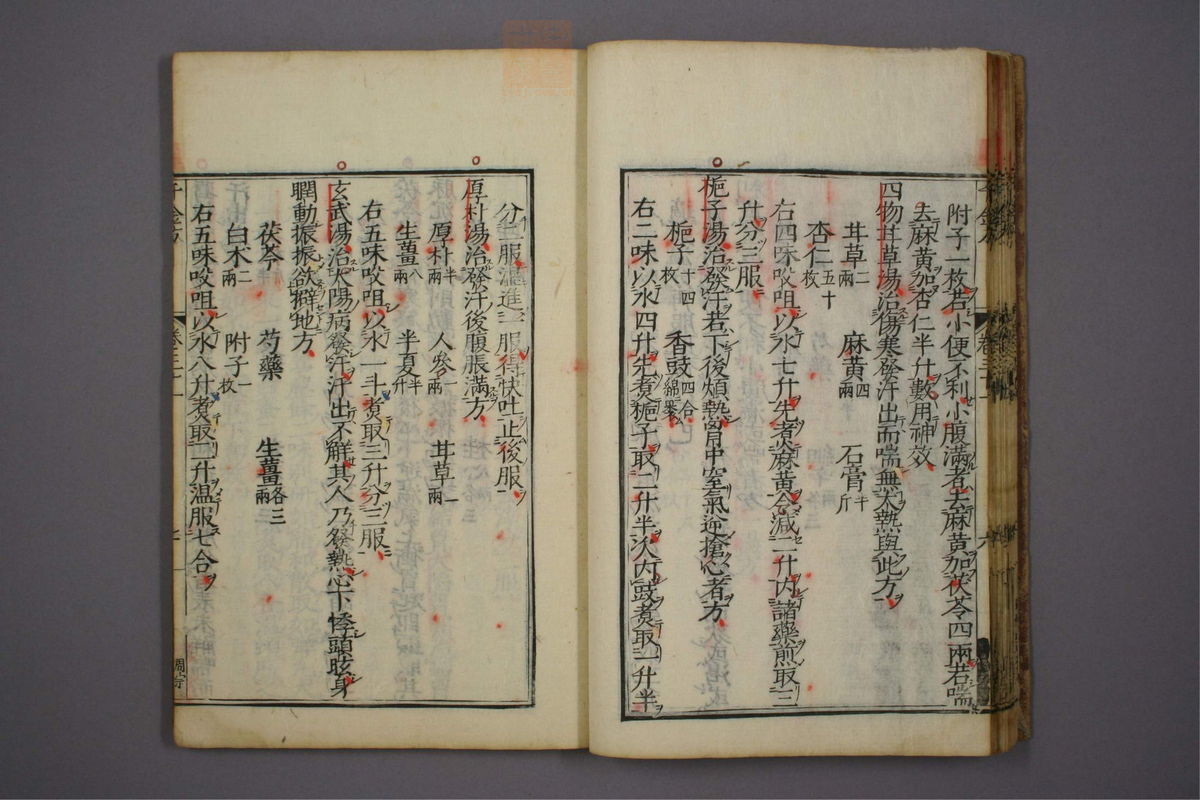 附子一枚若小便不利小腹滿者去麻黃加茯苓四兩若喘
去麻黃加杏仁半升數用神效
四物甘草湯治傷寒發汗出而喘無大熱與此方
甘草二兩 麻黃四兩 石膏半斤
杏仁五十枚
右四味㕮咀以水七升先煮麻黃令減二升內諸藥煎取三
升分三服
梔子湯治發汗若下後煩熱胷中窒氣逆搶心者方
梔子十四枚 香豉四合綿裹
右二味以水四升先煮梔子取二升半次內豉煮取一升半
分二服溫進一服得快吐止後服
厚朴湯治發汗後腹脹滿方
厚朴半兩 人參一兩 甘草一兩
生薑八兩 半夏半升
右五味㕮咀以水一斗煮取三升分三服
玄武湯治太陽病發汗汗出不解其人仍發熱心下悸頭眩身
瞤動振振欲擗地方
茯苓 芍藥 生薑各三兩
白朮二兩 附子一枚
右五味㕮咀以水八升煮取二升溫服七合